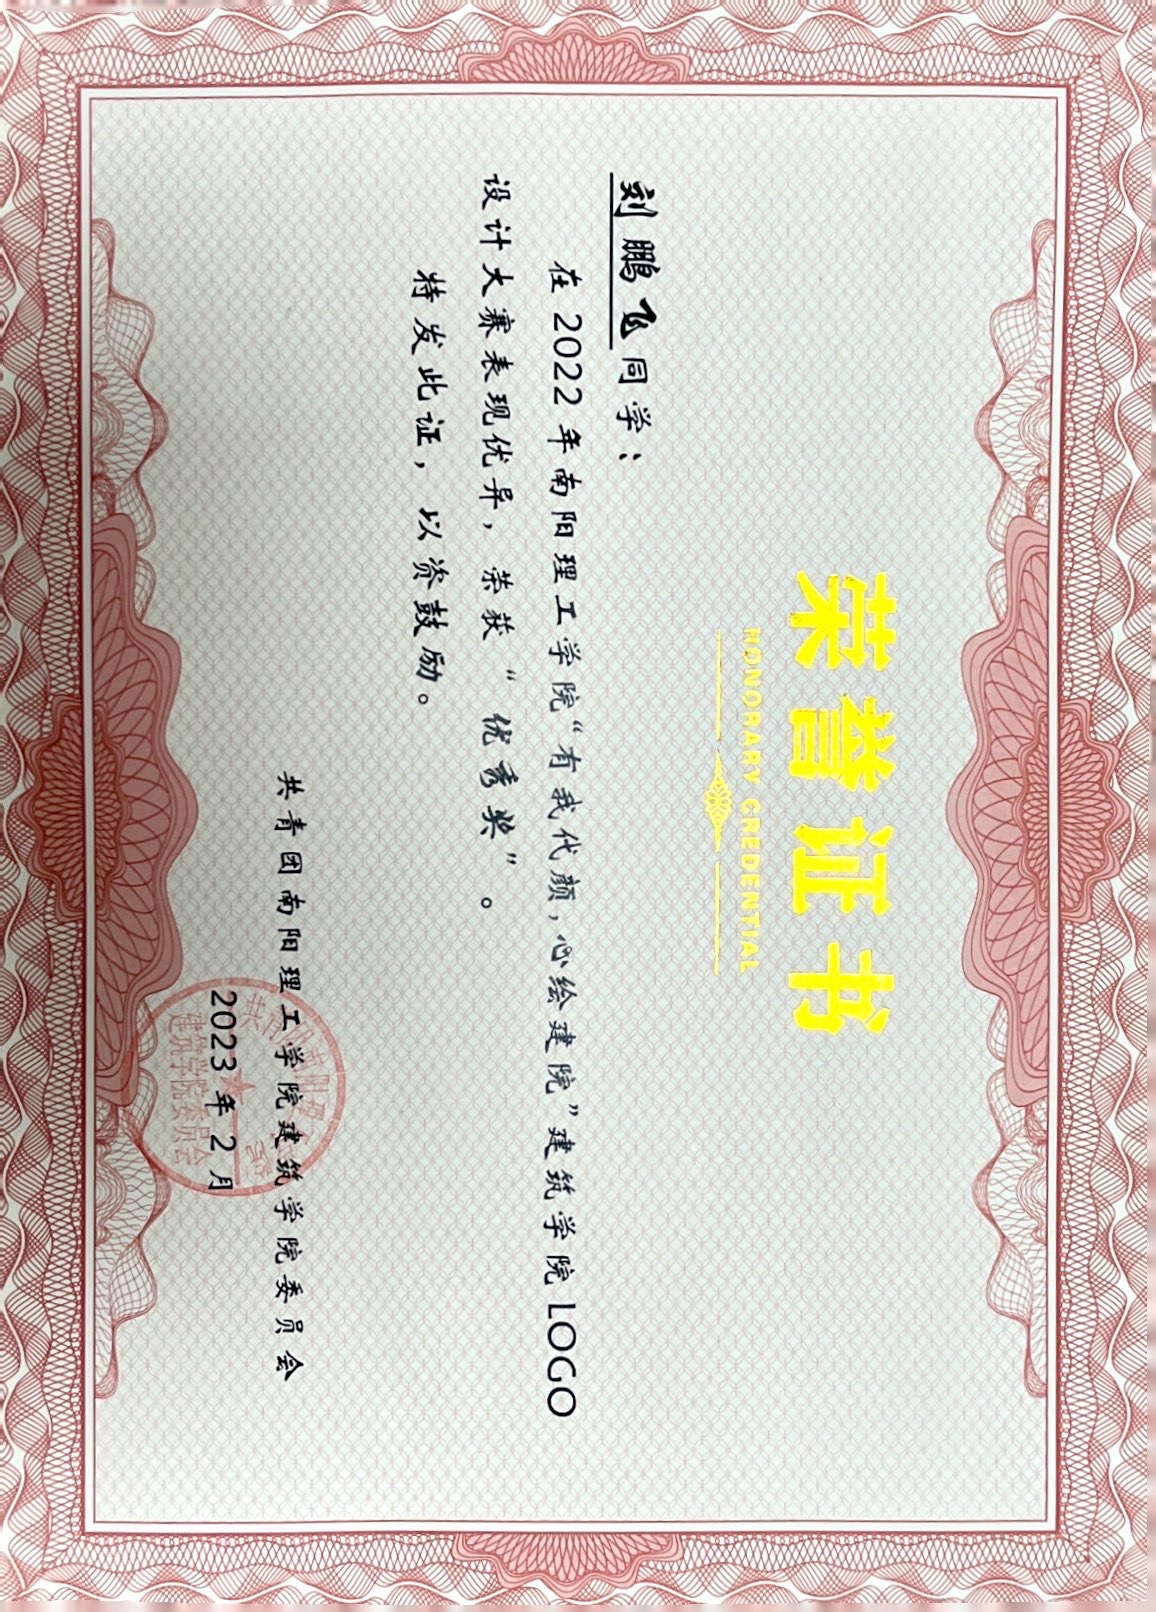 荣誉证书
HONORARY CREDENTIAL
刘鹏飞同学：
在2022年南阳理工学院“有我代颜，心绘建院”建筑学院LOGO
设计大赛表现优异，荣获“优秀奖”。
特发此证，以资鼓励。
共青团南阳理工学院建筑学院委员会
2023年2月
建筑学院委员会